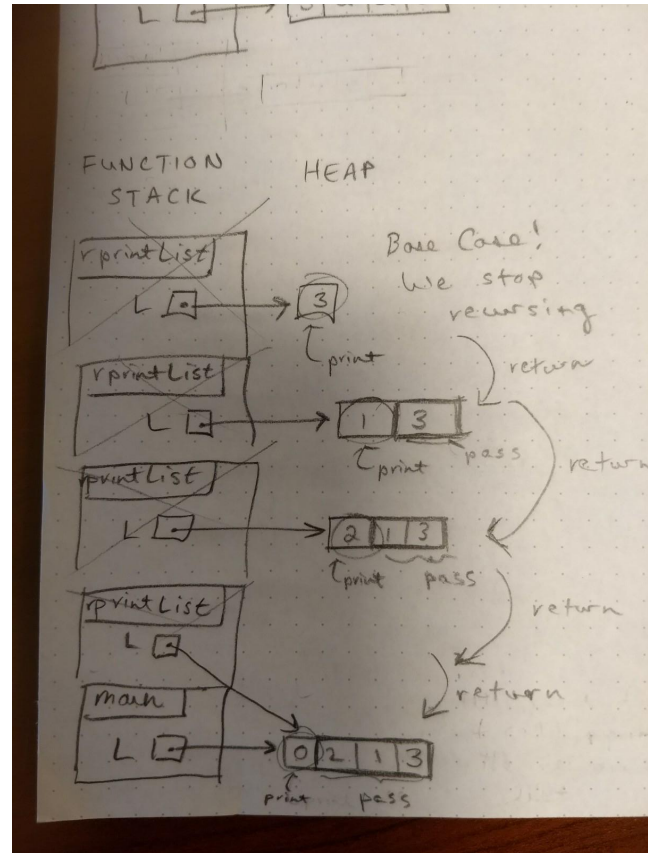 L
FUNCTION
STACK
HEAP
rprintList
L
3
print
Base Case!
We stop
recursing
return
rprintList
L
1 3
print
pass
return
rprintList
L
2 1 3
print
pass
return
rprintList
L
return
main
L
0 2 1 3
print
pass